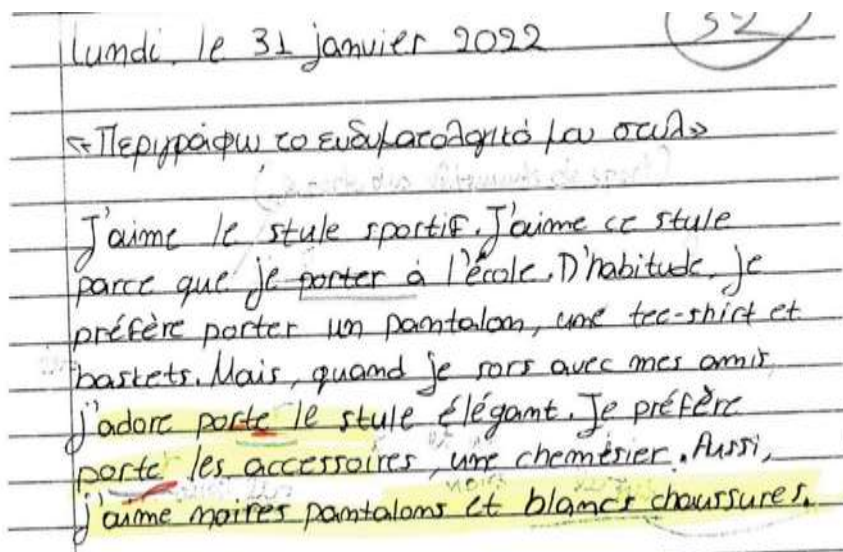 lundi, le 31 janvier 2022
32
«Περιγράφω το ενδυματολογικό μου στυλ»
J'aime le stule sportif. J'aime ce stule
parce que je porter à l'école. D'habitude, je
préfère porter un pantalon, une tee-shirt et
baskets. Mais, quand je sors avec mes amis,
j'adore porte le stule élégant. Je préfère
porte les accessoires, une chemésier. Aussi,
j'aime noires pantalons et blancs chaussures.